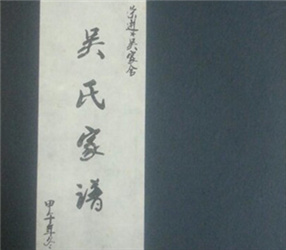 吴家舍
吴氏家谱
甲午年冬